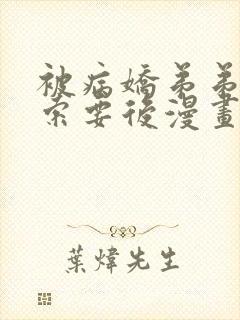 被病嬌弟弟
索要後漫畫
葉煒先生